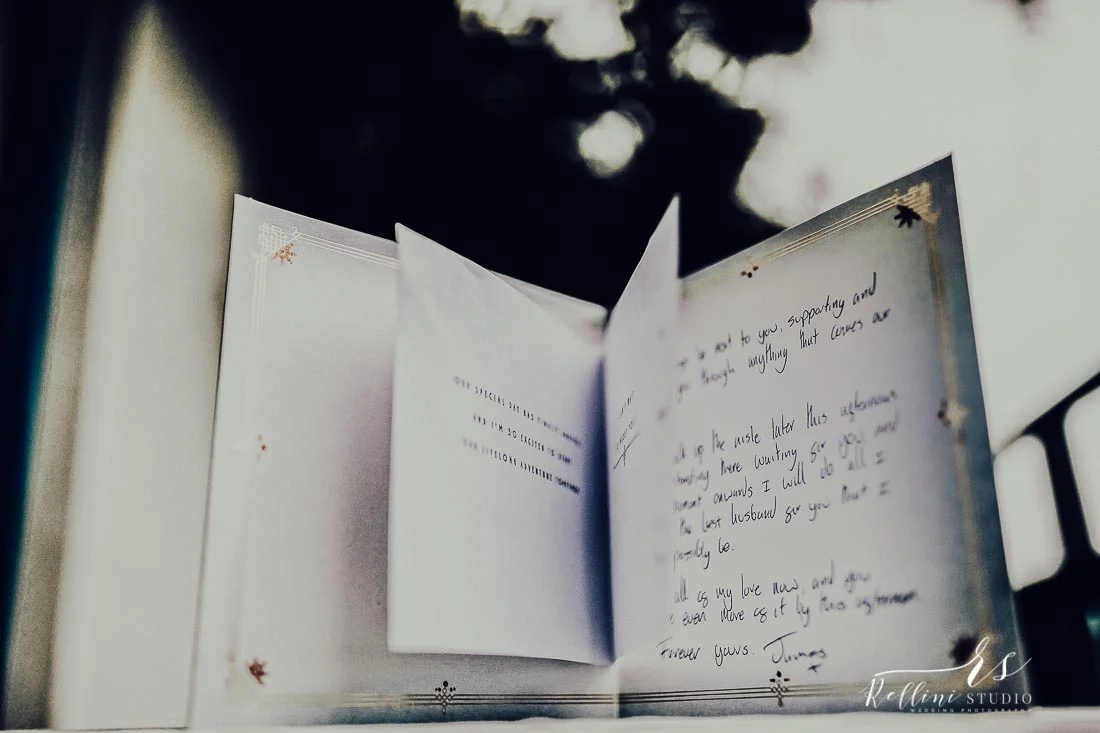 OUR SPECIAL DAY HAS FINALLY
AND I'M SO EXCITED TO
OUR LIFELONG ADVENTURE TOGETHER
next to you, supporting and
you through anything that comes our
up the aisle later this afternoon
standing there waiting for you, and
moment onwards I will do all I
the best husband for you that I
possibly be.
all of my love now, and you
even more of it by this afternoon.
Forever yours. James
x
rs
Rellini STUDIO
WEDDING PHOTOGRAPHY